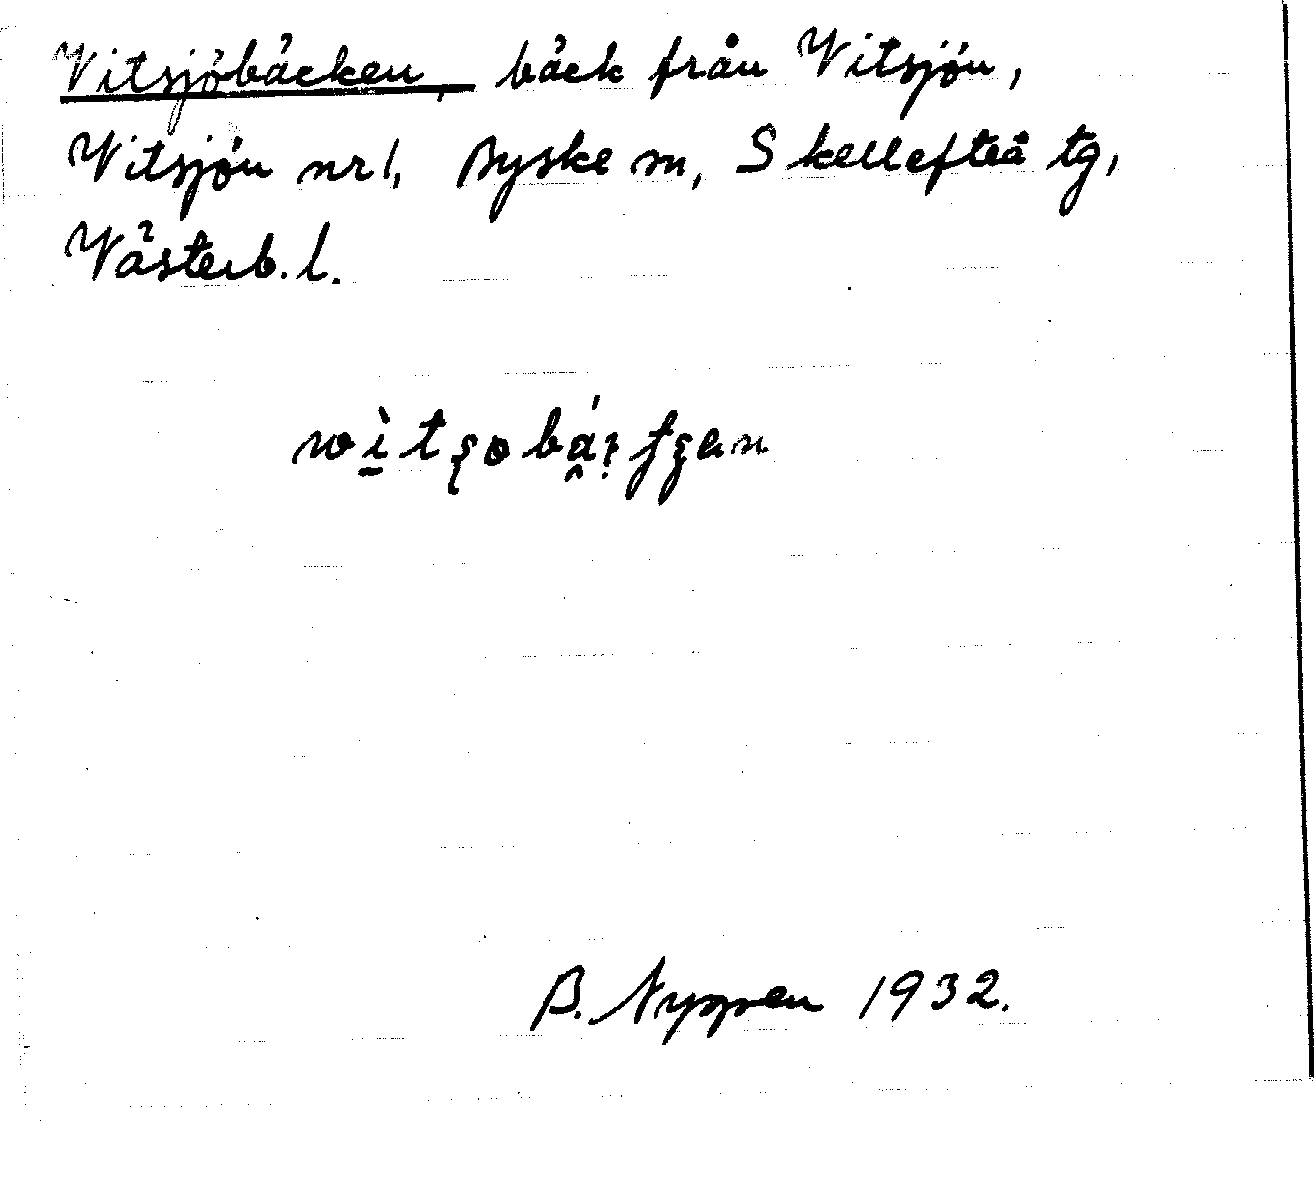 Vitsjöbäcken, bäck från Vitsjön,
Vitsjön nr 1, Byske sn, Skellefteå tg,
Västerb. l.
B. Nyppen 1932.